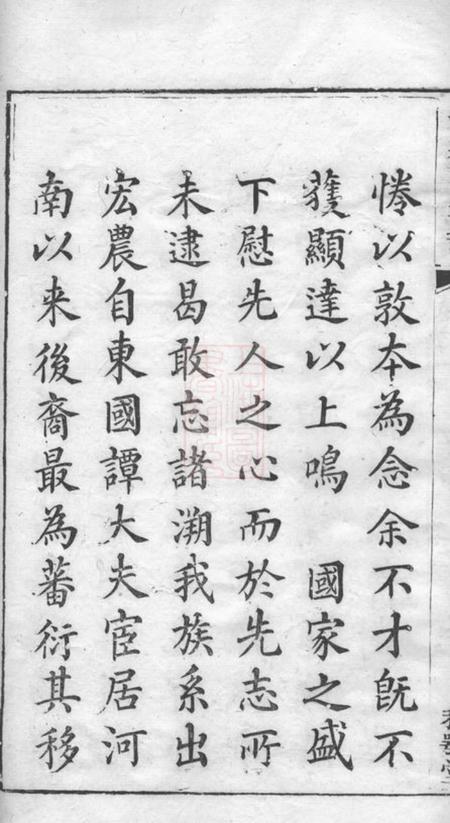 惓以敦本為念余不才既不
獲顯達以上鳴　國家之盛
下慰先人之心而於先志所
未逮曷敢忘諸溯我族系出
宏農自東國譚大夫宦居河
南以来後裔最為蕃衍其移